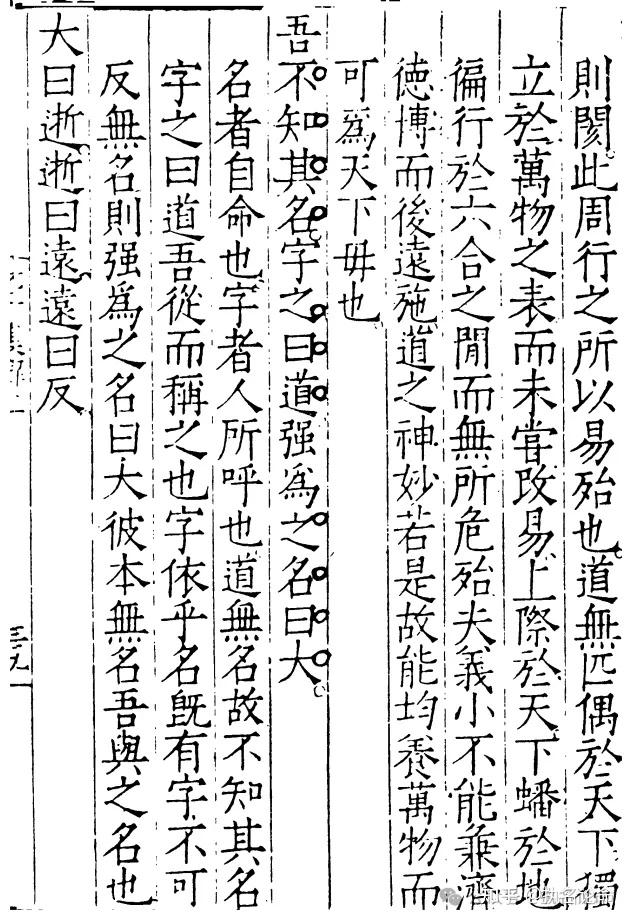 則閡此周行之所以易殆也道無匹偶於天下獨
立於萬物之表而未甞改易上際於天下蟠於地
徧行於六合之間而無所危殆夫義小不能兼濟
德博而後遠施道之神妙若是故能均養萬物而
可爲天下毋也
吾不知其名字之曰道强爲之名曰大
名者自命也字者人所呼也道無名故不知其名
字之曰道吾從而稱之也字依乎名旣有字不可
反無名則强爲之名曰大彼本無名吾與之名也
大曰逝逝曰遠遠曰反